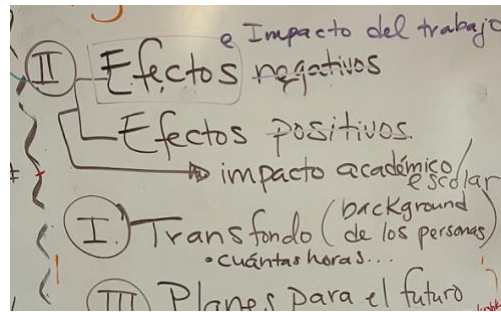 e Impacto del trabajo
II Efectos negativos
Efectos positivos
impacto académico/
escolar
I. Transfondo (background
de los personas)
• cuántas horas...
III Planes para el futuro